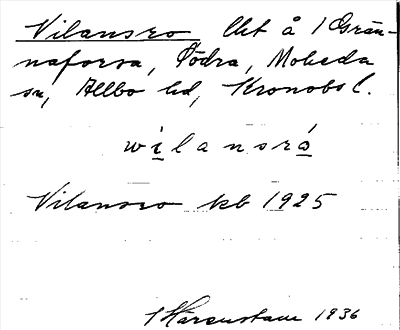 Vilansro lht å 1 Grän-
naforsa, Södra, Moheda
sn, Allbo hd, Kronobs l.
wilansró
Vilansro kb 1925
Härenstam 1936